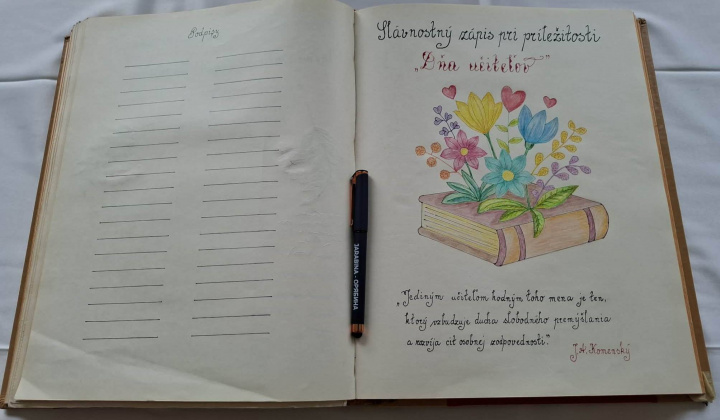 Podpisy
Slávnostný zápis pri príležitosti
„Dňa učiteľov"
JARABINA - ОРЯБИНА
„Jediným učiteľom hodným toho mena je ten,
ktorý vzbudzuje ducha slobodného premýšľania
a rozvíja cit osobnej zodpovednosti."
J. A. Komenský